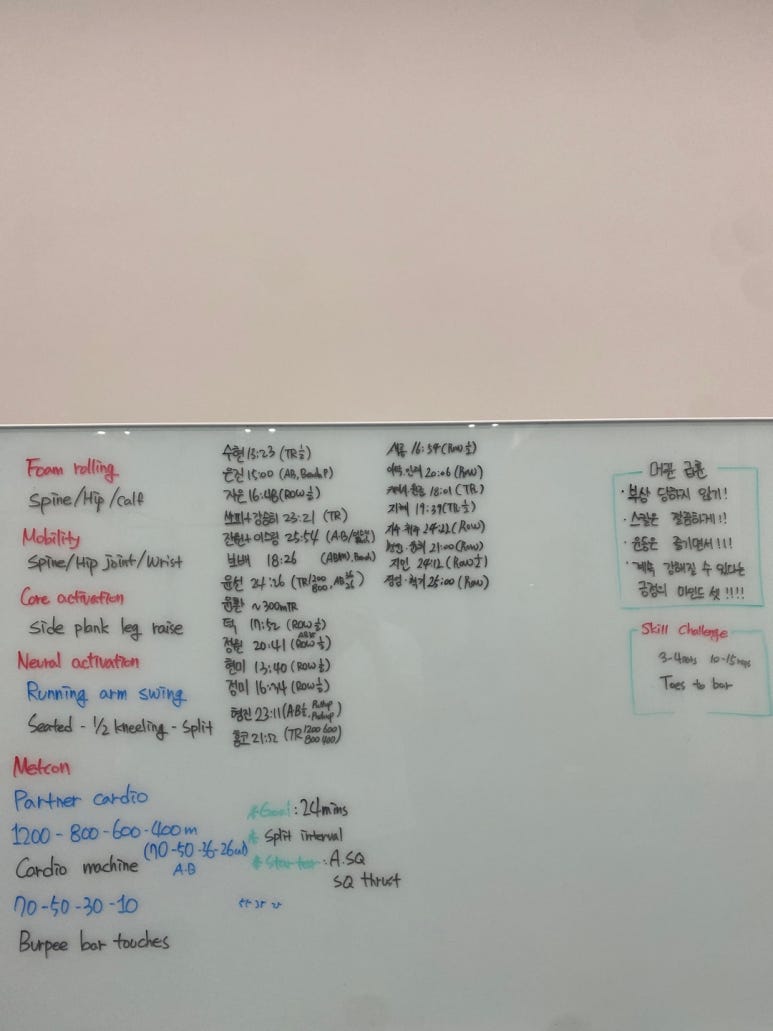 Foam rolling
Spine/Hip/calf
Mobility
Spine/Hip joint/Wrist
Core activation
side plank leg raise
Neural activation
Running arm swing
Seated - 1/2 kneeling - split
Metcon
Partner cardio
1200-800-600-400m
(70-50-36-26cal)
Cardio machine A.B
70-50-30-10
Burpee bar touches
수현 13:23 (TR½)
은진 15:00 (AB, Bench P)
지은 16:48 (Row½)
23:21 (TR)
25:54
보배 18:26
윤선 24:26 (TR 1200 800, AB
윤환 ~300m TR
덕 17:52 (Row½)
정원 20:41 (Row½)
현미 13:40 (Row½)
정미 16:74 (Row½)
형진 23:11 (AB½,
홍코 21:52 (TR 1200 600 800 400)
*Goal: 24mins
* Split interval
* Starter: A.SQ
SQ thrust
16:54 (Row½)
20:06 (Row)
18:01 (TR)
지혜 19:39 (TR½)
24:22 (Row)
21:00 (Row)
지민 24:12 (Row½)
25:00 (Row)
· 부상 당하지 않기!
· 스킬은 깔끔하게!!
· 운동은 즐기면서!!!
· 계속 강해질 수 있다는
긍정의 마인드 셋!!!!
Skill Challenge
3-4sets 10-15reps
Toes to bar